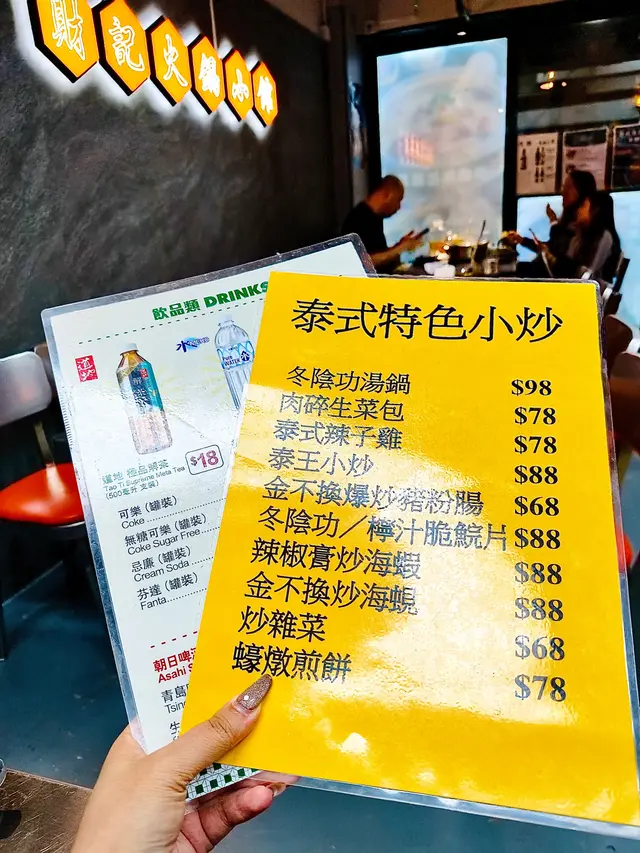 財記火鍋小館
飲品類 DRINKS
道地
道地 極品解茶
Tao Ti Supreme Meta Tea
(500毫升 支裝)
$18
可樂 (罐裝)
Coke
無糖可樂 (罐裝)
Coke Sugar Free
忌廉 (罐裝)
Cream Soda
芬達 (罐裝)
Fanta
朝日啤
Asahi S
青島
Tsing
生
泰式特色小炒
冬陰功湯鍋 $98
肉碎生菜包 $78
泰式辣子雞 $78
泰王小炒 $88
金不換爆炒豬粉腸 $68
冬陰功／檸汁脆鯇片 $88
辣椒膏炒海蝦 $88
金不換炒海蜆 $88
炒雜菜 $68
蠔燉煎餅 $78